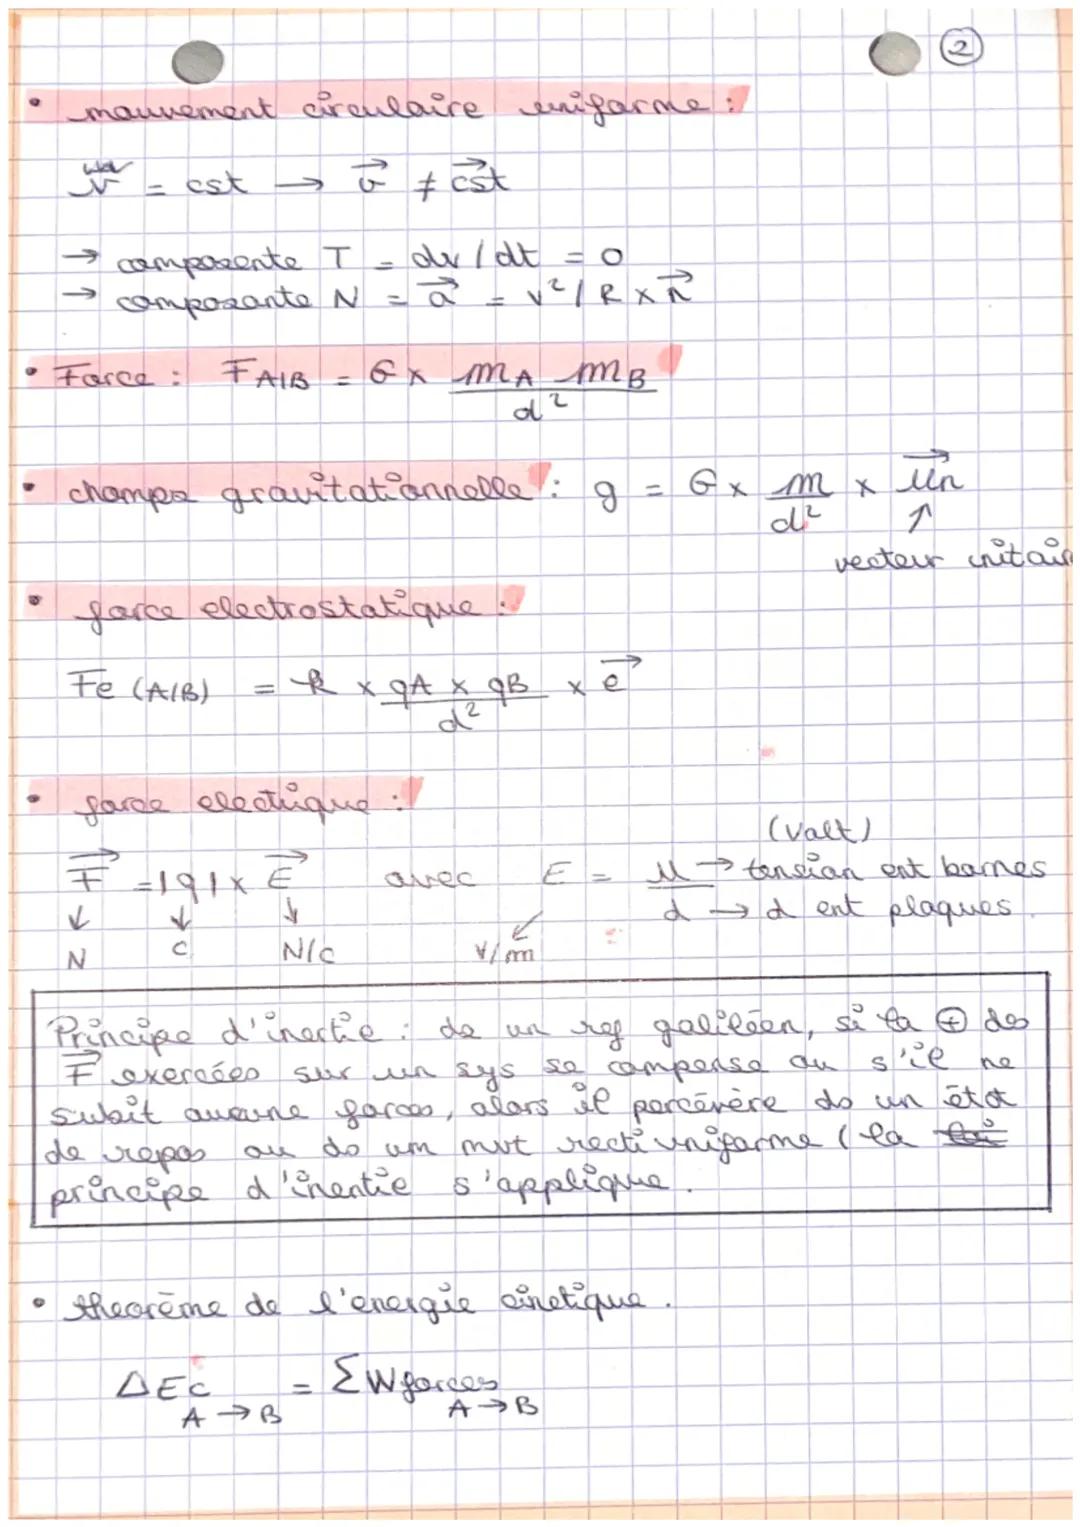 2
• mouvement circulaire uniforme :
v = cst → v⃗ ≠ cst⃗
→ composante T = dv / dt = 0
→ composante N = a⃗ = v² / R × n⃗
• Force : F A/B = G × mA mB / d²
• champs gravitationnelle : g = G × m / d² × un⃗
↑
vecteur unitair
• force electrostatique :
Fe (A/B) = k × qA × qB / d² × e⃗
• force electrique :
(Volt)
F⃗ = |q| × E⃗ avec E = u / d → tension ent bornes
→ d ent plaques.
↓ ↓ ↓ ↙
N C N/C V/m
Principe d'inertie : ds un ref galiléen, si la ⊕ des
F⃗ exercées sur un sys se compense ou s'il ne
subit aucune forces, alors il percévère ds un état
de repos ou ds um mvt recti uniforme ( la loi
principe d'inertie s'applique.
• theorème de l'energie cinetique.
ΔEc A → B = ΣW forces A → B